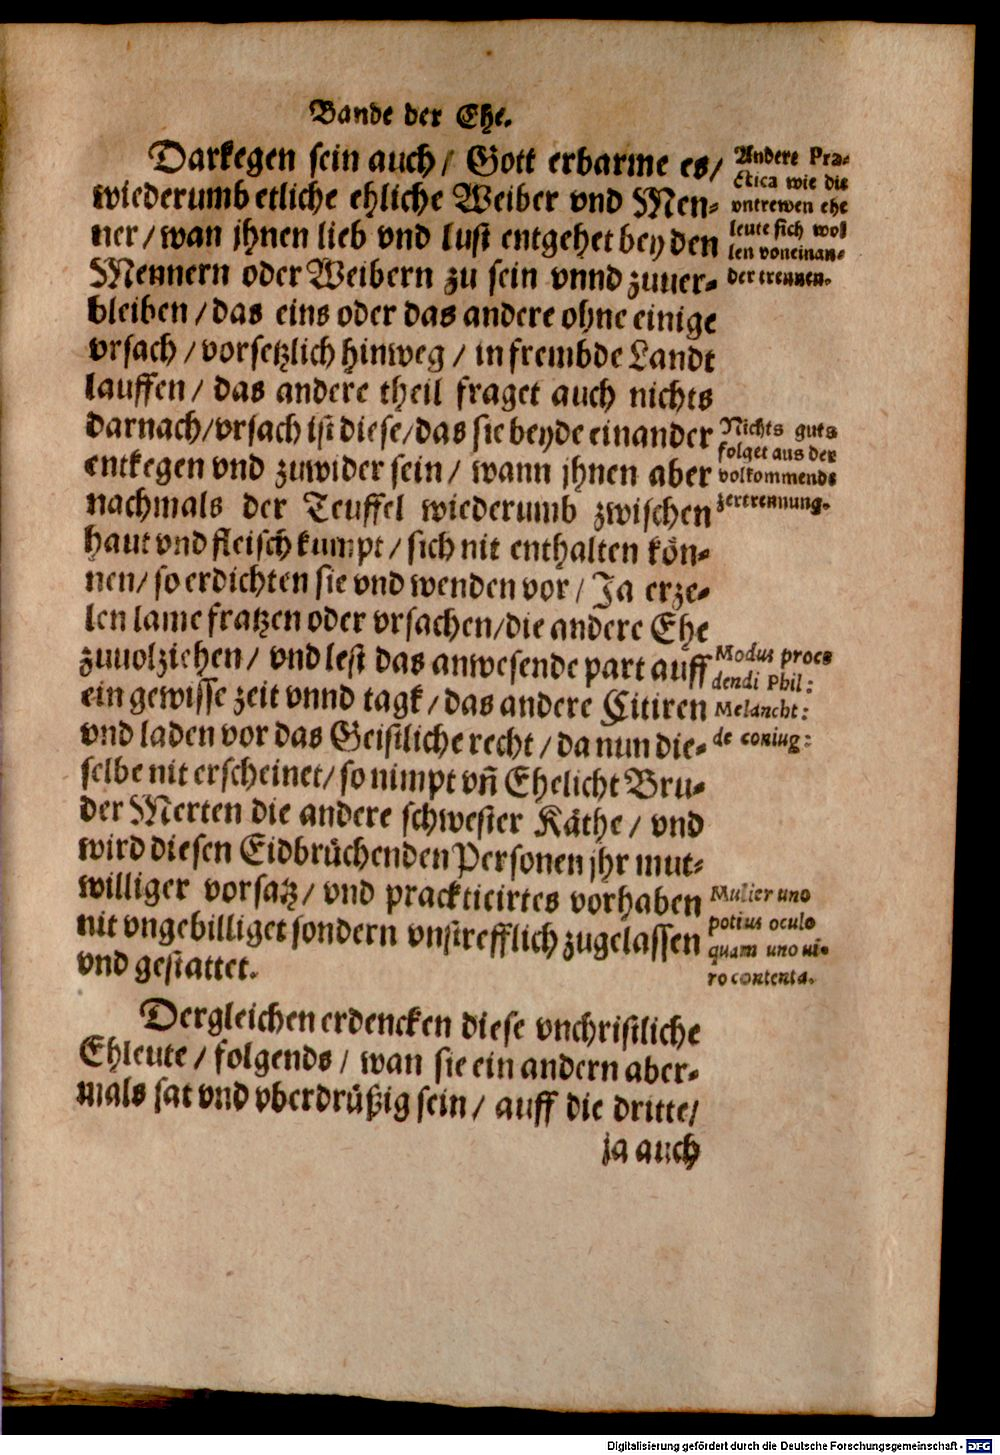 Bande der Ehe.
Darkegen sein auch / Gott erbarme es /
wiederumb etliche ehliche Weiber vnd Men-
ner / wan jhnen lieb vnd lust entgehet bey den
Mennern oder Weibern zu sein vnnd zuuer-
bleiben / das eins oder das andere ohne einige
vrsach / vorsetzlich hinweg / in frembde Landt
lauffen / das andere theil fraget auch nichts
darnach / vrsach ist diese / das sie beyde einander
entkegen vnd zuwider sein / wann jhnen aber
nachmals der Teuffel wiederumb zwischen
haut vnd fleisch kumpt / sich nit enthalten kön-
nen / so erdichten sie vnd wenden vor / Ja erze-
len lame fratzen oder vrsachen / die andere Ehe
zuuolziehen / vnd lest das anwesende part auff
ein gewisse zeit vnnd tagk / das andere Citiren
vnd laden vor das Geistliche recht / da nun die-
selbe nit erscheinet / so nimpt vñ Ehelicht Bru-
der Merten die andere schwester Käthe / vnd
wird diesen Eidbrüchenden Personen jhr mut-
williger vorsatz / vnd prackticirtes vorhaben
nit vngebilliget sondern vnstrefflich zugelassen
vnd gestattet.
Dergleichen erdencken diese vnchristliche
Ehleute / folgends / wan sie ein andern aber-
mals sat vnd vberdrüßig sein / auff die dritte /
ja auch
Andere Pra-
ctica wie die
vntrewen ehe
leute sich wol
len voneinan-
der trennen.
Nichts guts
folget aus der
volkommende
zertrennung.
Modus proce
dendi Phil:
Melancht:
de coniug:
Mulier uno
potius oculo
quam uno ui-
ro contenta.
Digitalisierung gefördert durch die Deutsche Forschungsgemeinschaft - DFG